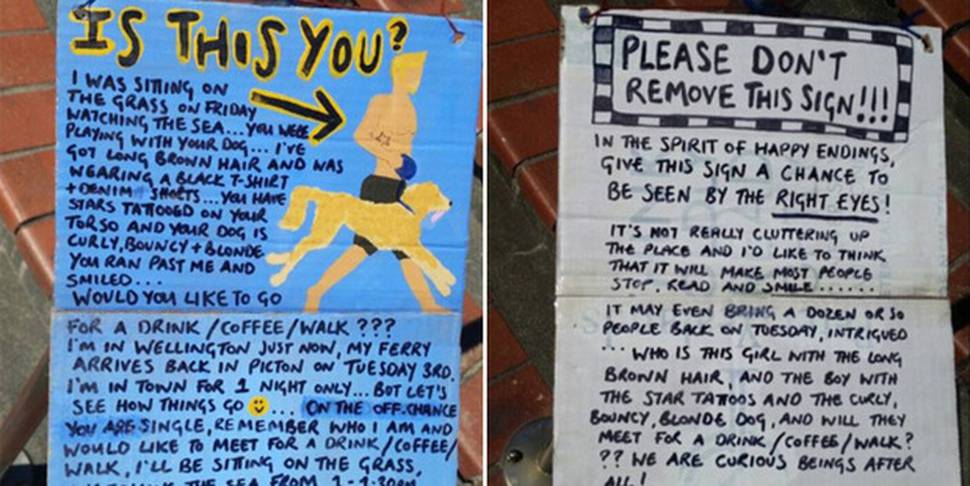 IS THIS YOU?
I WAS SITTING ON
THE GRASS ON FRIDAY
WATCHING THE SEA... YOU WERE
PLAYING WITH YOUR DOG... I'VE
GOT LONG BROWN HAIR AND WAS
WEARING A BLACK T-SHIRT
+ DENIM SHORTS... YOU HAVE
STARS TATTOOED ON YOUR
TORSO AND YOUR DOG IS
CURLY, BOUNCY + BLONDE
YOU RAN PAST ME AND
SMILED...
WOULD YOU LIKE TO GO
FOR A DRINK/COFFEE/WALK???
I'M IN WELLINGTON JUST NOW, MY FERRY
ARRIVES BACK IN PICTON ON TUESDAY 3RD.
I'M IN TOWN FOR 1 NIGHT ONLY... BUT LET'S
SEE HOW THINGS GO 😊... ON THE OFF.CHANCE
YOU ARE SINGLE, REMEMBER WHO I AM AND
WOULD LIKE TO MEET FOR A DRINK/COFFEE/
WALK, I'LL BE SITTING ON THE GRASS,
THE SEA FROM 1-1.30pm
PLEASE DON'T
REMOVE THIS SIGN!!!
IN THE SPIRIT OF HAPPY ENDINGS,
GIVE THIS SIGN A CHANCE TO
BE SEEN BY THE RIGHT EYES!
IT'S NOT REALLY CLUTTERING UP
THE PLACE AND I'D LIKE TO THINK
THAT IT WILL MAKE MOST PEOPLE
STOP, READ AND SMILE.......
IT MAY EVEN BRING A DOZEN OR SO
PEOPLE BACK ON TUESDAY, INTRIGUED
... WHO IS THIS GIRL WITH THE LONG
BROWN HAIR, AND THE BOY WITH
THE STAR TATTOOS AND THE CURLY,
BOUNCY, BLONDE DOG, AND WILL THEY
MEET FOR A DRINK/COFFEE/WALK?
?? WE ARE CURIOUS BEINGS AFTER
ALL!